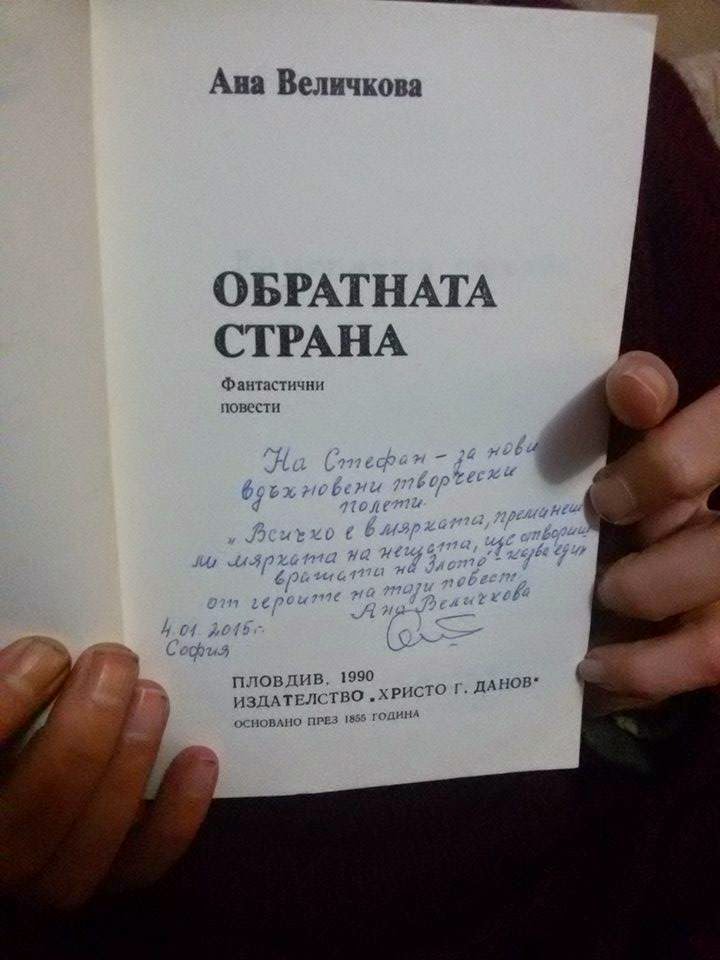 Ана Величкова
ОБРАТНАТА
СТРАНА
Фантастични
повести
На Стефан – за нови
вдъхновени творчески
полети.
„Всичко е в мярката, преминеш
ли мярката на нещата, ще отвориш
вратата на Злото" - казва един
от героите на тази повест.
Ана Величкова
4.01.2015г.
София
ПЛОВДИВ, 1990
ИЗДАТЕЛСТВО „ХРИСТО Г. ДАНОВ"
ОСНОВАНО ПРЕЗ 1855 ГОДИНА